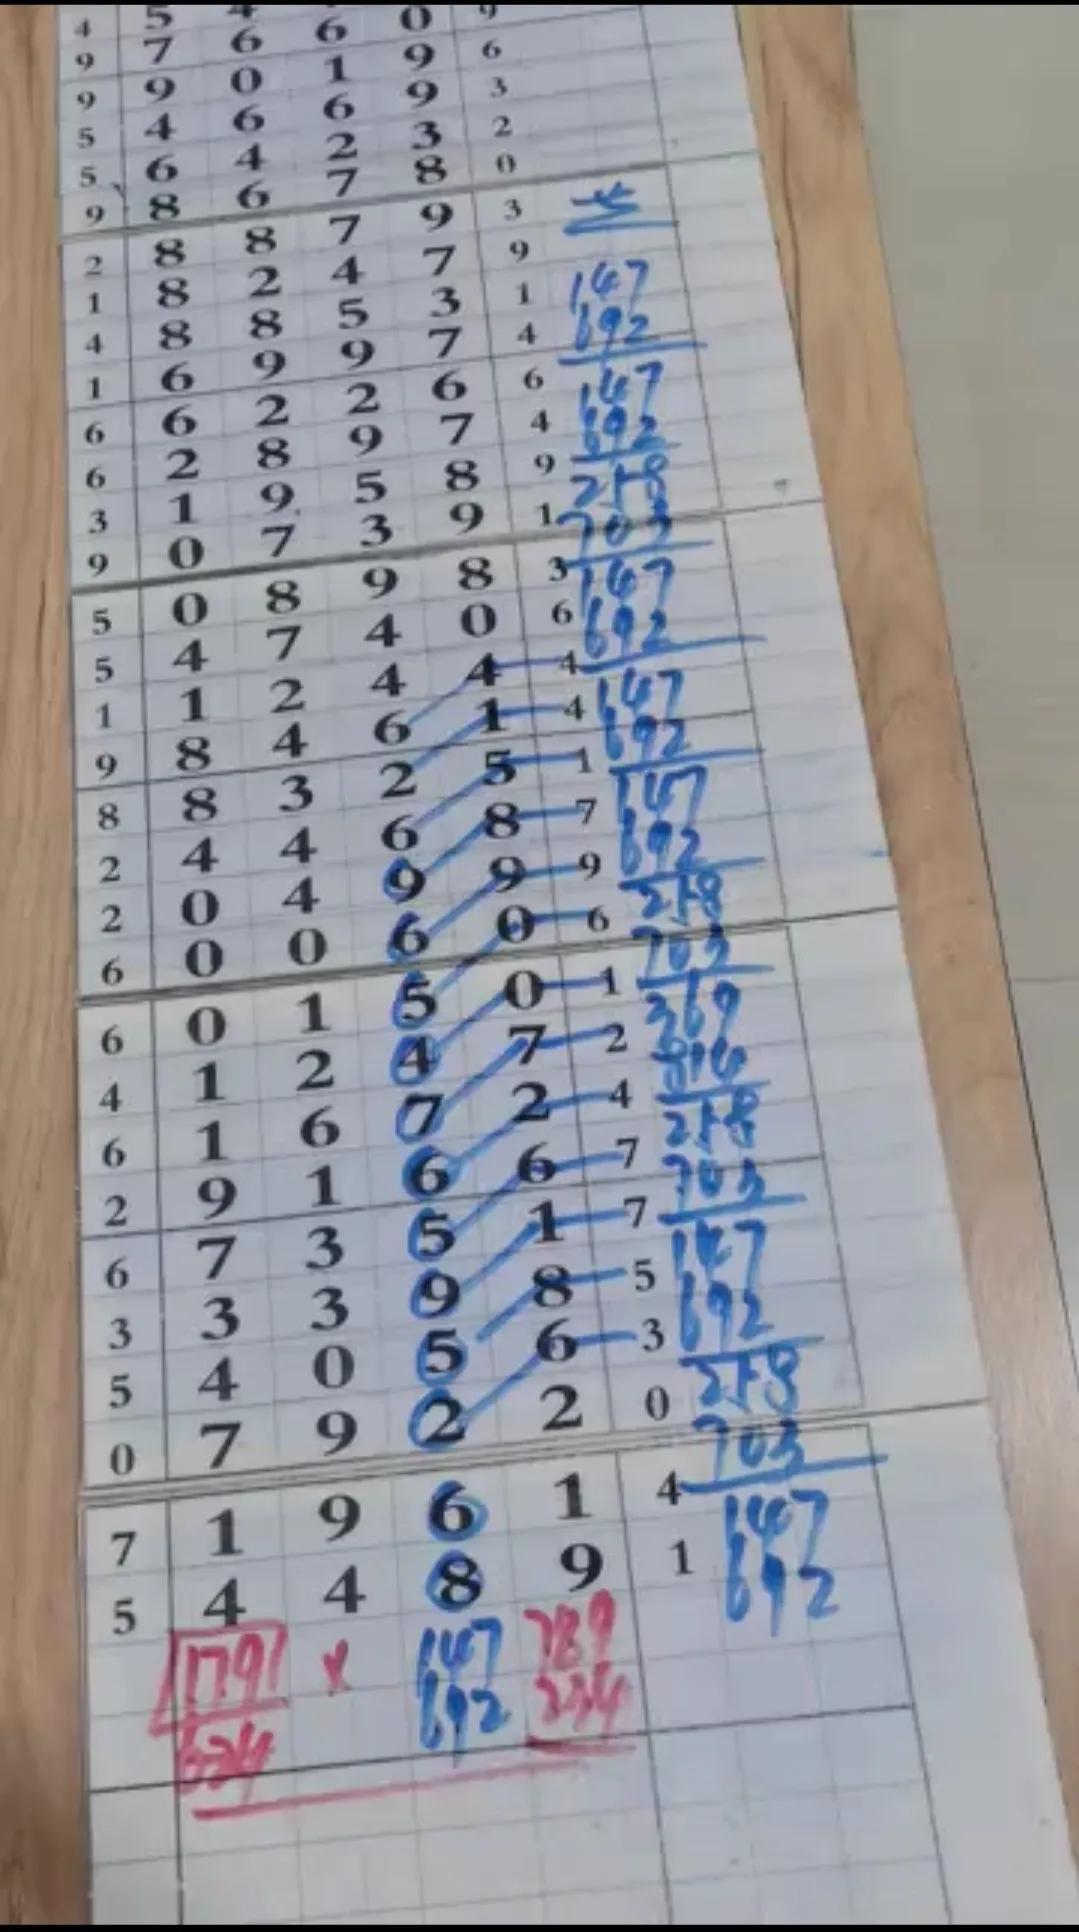 4 5 4 6 0 9
9 7 6 1 9 6
9 9 0 6 9 3
5 4 6 2 3 2
5 6 4 7 8 0
9 8 6 7 9 3
2 8 8 4 7 9
1 8 2 5 3 1 147
4 8 8 9 7 4 692
1 6 9 2 6 6 147
6 6 2 9 7 4 692
6 2 8 5 8 9 258
3 1 9 3 9 1 703
9 0 7
5 0 8 9 8 3 147
5 4 7 4 0 6 692
1 1 2 4 4 4
9 8 4 6 1 4 147
8 8 3 2 5 1 692
2 4 4 6 8 7 147
2 0 4 9 9 9 692
6 0 0 6 0 6 258
703
6 0 1 5 0 1 369
4 1 2 4 7 2 814
6 1 6 7 2 4 258
2 9 1 6 6 7 703
6 7 3 5 1 7 147
3 3 3 9 8 5 692
5 4 0 5 6 3 258
0 7 9 2 2 0 703
7 1 9 6 1 4 147
5 4 4 8 9 1 692
1791 x 147 789
692 234